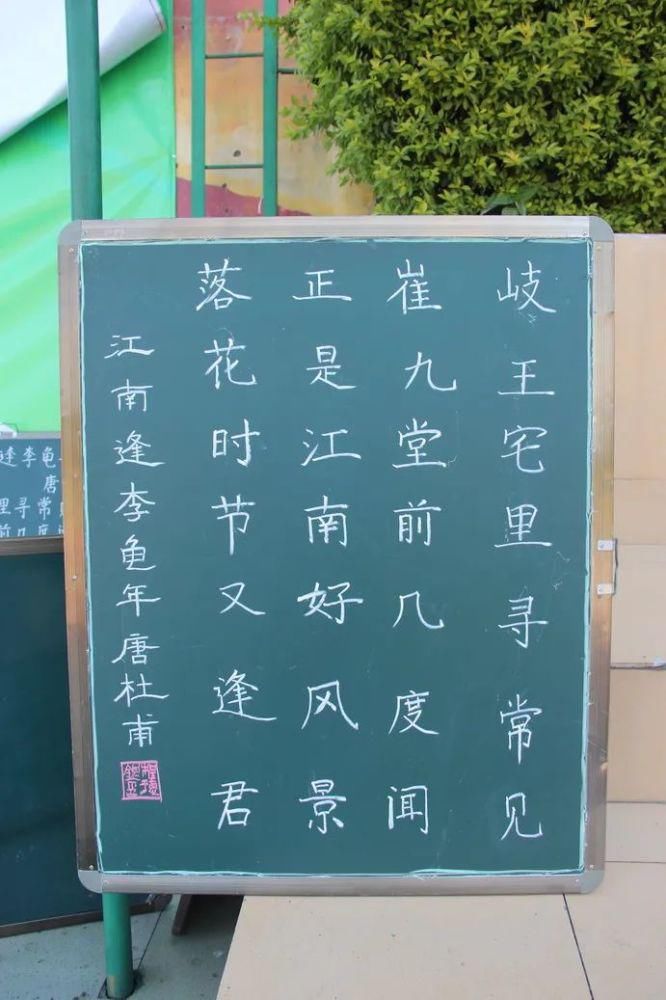 岐王宅里寻常见
崔九堂前几度闻
正是江南好风景
落花时节又逢君
江南逢李龟年唐杜甫
逢李龟
唐
里寻常
前几度